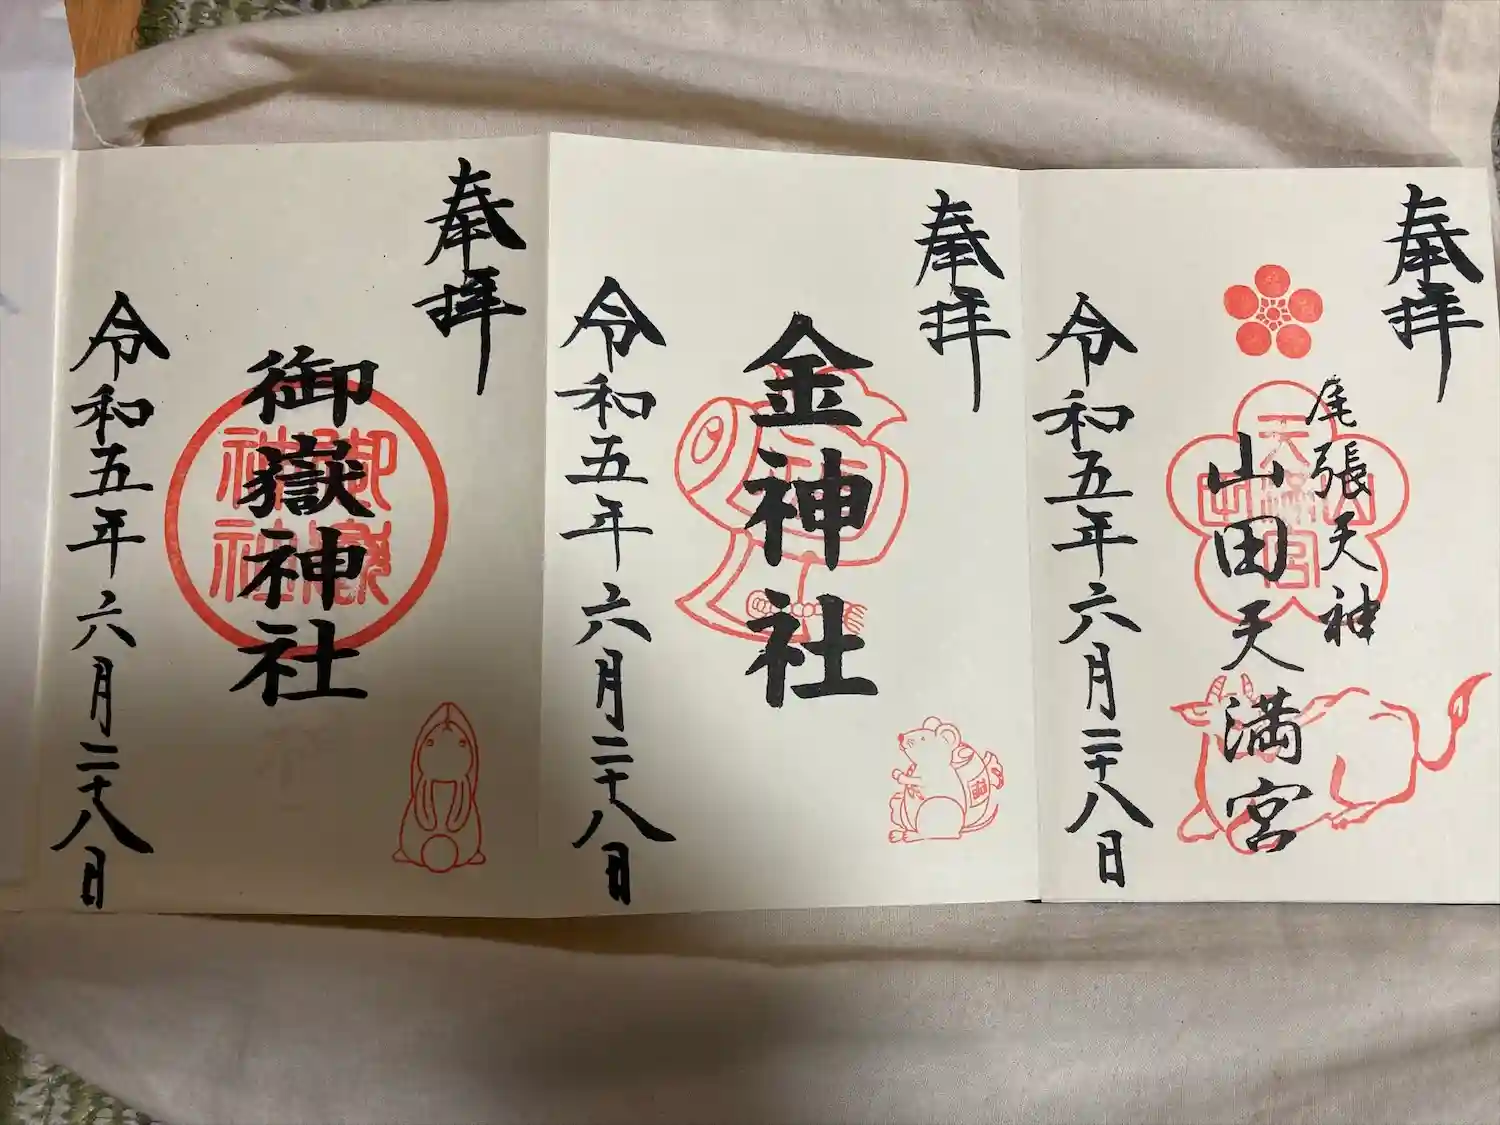 奉拝
尾張天神
山田天満宮
令和五年六月二十八日
奉拝
金神社
令和五年六月二十八日
奉拝
御嶽神社
御嶽
神社
令和五年六月二十八日